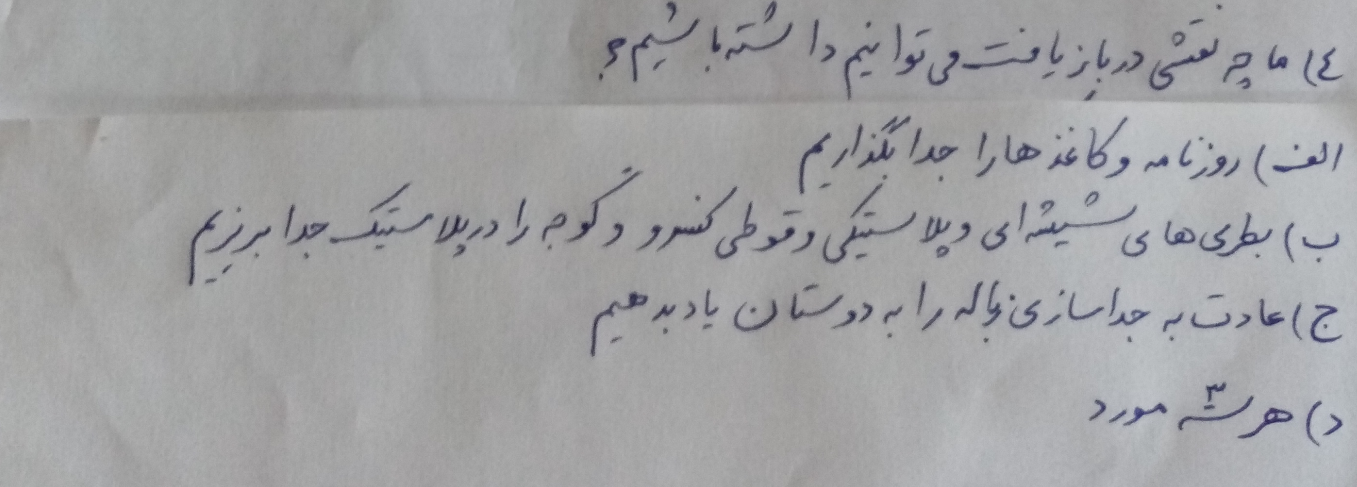 ۴) ما چه نقشی در بازیافت می توانیم داشته باشیم؟
الف) روزنامه و کاغذ ها را جدا بگذاریم
ب) بطری های شیشه ای و پلاستیکی و قوطی کنسرو و گوجه را در پلاستیک جدا بریزیم
ج) عادت به جداسازی زباله را به دوستان یاد بدهیم
د) هر سه مورد